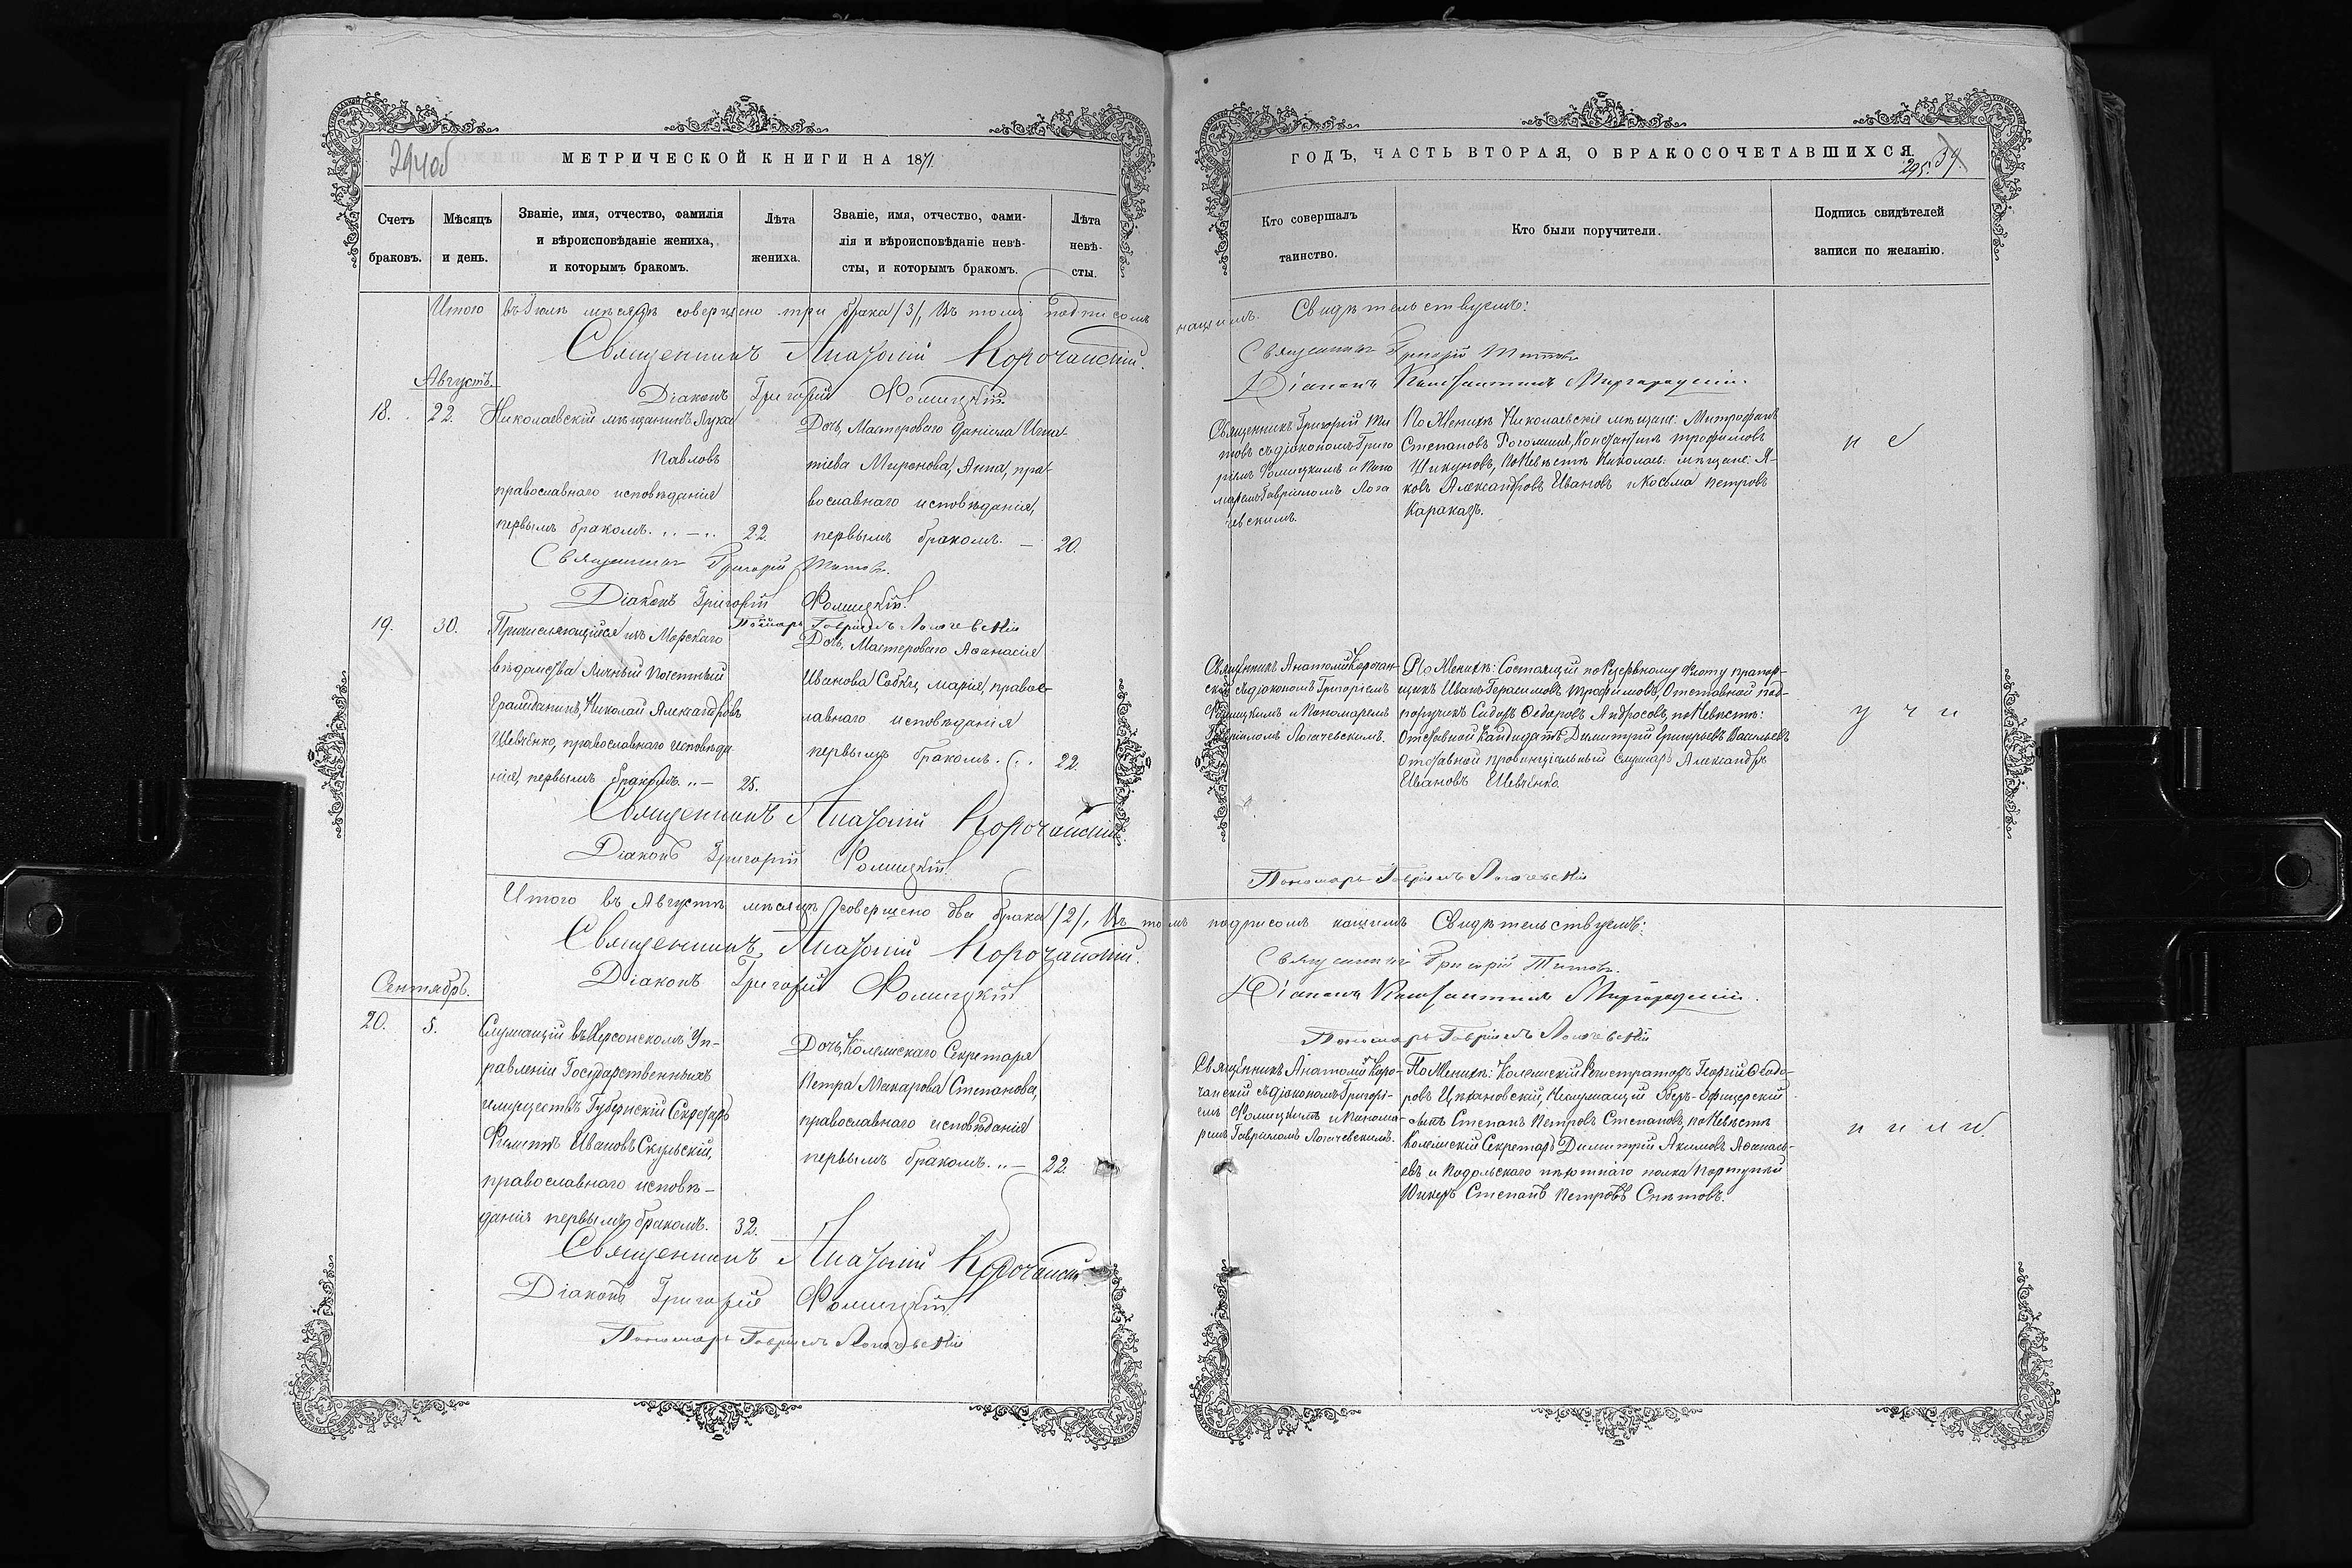 294об
МЕТРИЧЕСКОЙ КНИГИ НА 1871.
Счетъ браковъ.
Мѣсяцъ и день.
Званіе, имя, отчество, фамилія
и вѣроисповѣданіе жениха,
и которымъ бракомъ.
Лѣта жениха.
Званіе, имя, отчество, фами-
лія и вѣроисповѣданіе невѣ-
сты, и которымъ бракомъ.
Лѣта невѣ-
сты.
Итого въ Іюлѣ мѣсяцѣ совершено три брака /3/, Въ томъ подписомъ
Священникъ Анатолій Корочанскій.
Діаконъ Григорій Фомицкій.
Августъ.
18.
22.
Николаевскій мѣщанинъ Лука
Павловъ
православнаго исповѣданія
первымъ бракомъ.
22.
Дочь Мастероваго Даніила Игна-
тіева Миронова, Анна, пра-
вославнаго исповѣданія,
первымъ бракомъ. —
20.
Священникъ Григорій Титовъ.
Діаконъ Григорій Фомицкій.
Пономарь Гавріилъ Логачевскій
19.
30.
Причисляющійся къ Морскаго
вѣдомства Личный Почетный
Гражданинъ, Николай Александровъ
Шевченко, православнаго исповѣда
нія, первымъ бракомъ.
25.
Дочь Мастероваго Аѳанасія
Иванова Собко, Марія, правос-
лавнаго исповѣданія
первымъ бракомъ.
22.
Священникъ Анатолій Корочанскій
Діаконъ Григорій Фомицкій.
Итого въ Августѣ мѣсяцѣ совершено два брака /2/. Въ томъ подписомъ нашимъ Свидѣтельствуемъ:
Священникъ Анатолій Корочанскій.
Діаконъ Григорій Фомицкій
Сентябрь.
20.
5.
Служащій въ Херсонскомъ Уп-
равленіи Государственныхъ
имуществъ Губернскій Секретарь
Филиппъ Ивановъ Скульскій,
православнаго исповѣ-
данія первымъ бракомъ.
32.
Дочь Колежскаго Секретаря
Петра Макарова Степанова,
православнаго исповѣданія
первымъ бракомъ. —
22.
Священникъ Анатолій Корочанскій
Діаконъ Григорій Фомицкій.
Пономарь Гавріилъ Логачевскій
ГОДЪ, ЧАСТЬ ВТОРАЯ, О БРАКОСОЧЕТАВШИХСЯ.
295. 39.
Кто совершалъ
таинство.
Кто были поручители.
Подпись свидѣтелей
записи по желанію.
нашимъ. Свидѣтельствуемъ:
Священникъ Григорій Титовъ
Діаконъ Константинъ Миргородскій.
Священникъ Григорій Ти
товъ съ діакономъ Григо
ріемъ Фомицкимъ и Поно
маремъ Гавріиломъ Лога
чевскимъ.
По Женихѣ Николаевскіе мѣщане: Митрофанъ
Степановъ Рогожинъ, Константинъ Трофимовъ
Шикуновъ, по Невѣстѣ Николаев. мѣщане: Я-
ковъ Александровъ Ивановъ и Косьма Петровъ
Караказъ.
Священникъ Анатолій Корочан-
скій съ діакономъ Григоріемъ
Фомицкимъ и Пономаремъ
Гавріиломъ Логачевскимъ.
По Женихѣ: Состоящій по Резервному флоту прапор-
щикъ Иванъ Герасимовъ Трофимовъ, Отставной под-
поручикъ Сидоръ Ѳедоровъ Андросовъ, по Невѣстѣ:
Отставной Кандидатъ Димитрій Григорьевъ Васильевъ
Отставной провинціальный Секретарь Александръ
Ивановъ Шевченко.
Пономарь Гавріилъ Логачевскій
Священникъ Григорій Титовъ.
Діаконъ Константинъ Миргородскій.
Пономарь Гавріилъ Логачевскій
Священникъ Анатолій Коро-
чанскій съ діакономъ Григорі-
емъ Фомицкимъ и Понома-
ремъ Гавріиломъ Логачевскимъ.
По Женихѣ: Колежскій Регистраторъ Георгій Ѳеодо-
ровъ Цехановскій, Неслужащій Оберъ-Офицерскій
сынъ Степанъ Петровъ Степановъ, по Невѣстѣ
Колежскій Секретарь Димитрій Акимовъ Аѳанась-
евъ и Подольскаго пѣхотнаго полка Портупей
Юнкеръ Степанъ Петровъ Снѣтовъ.